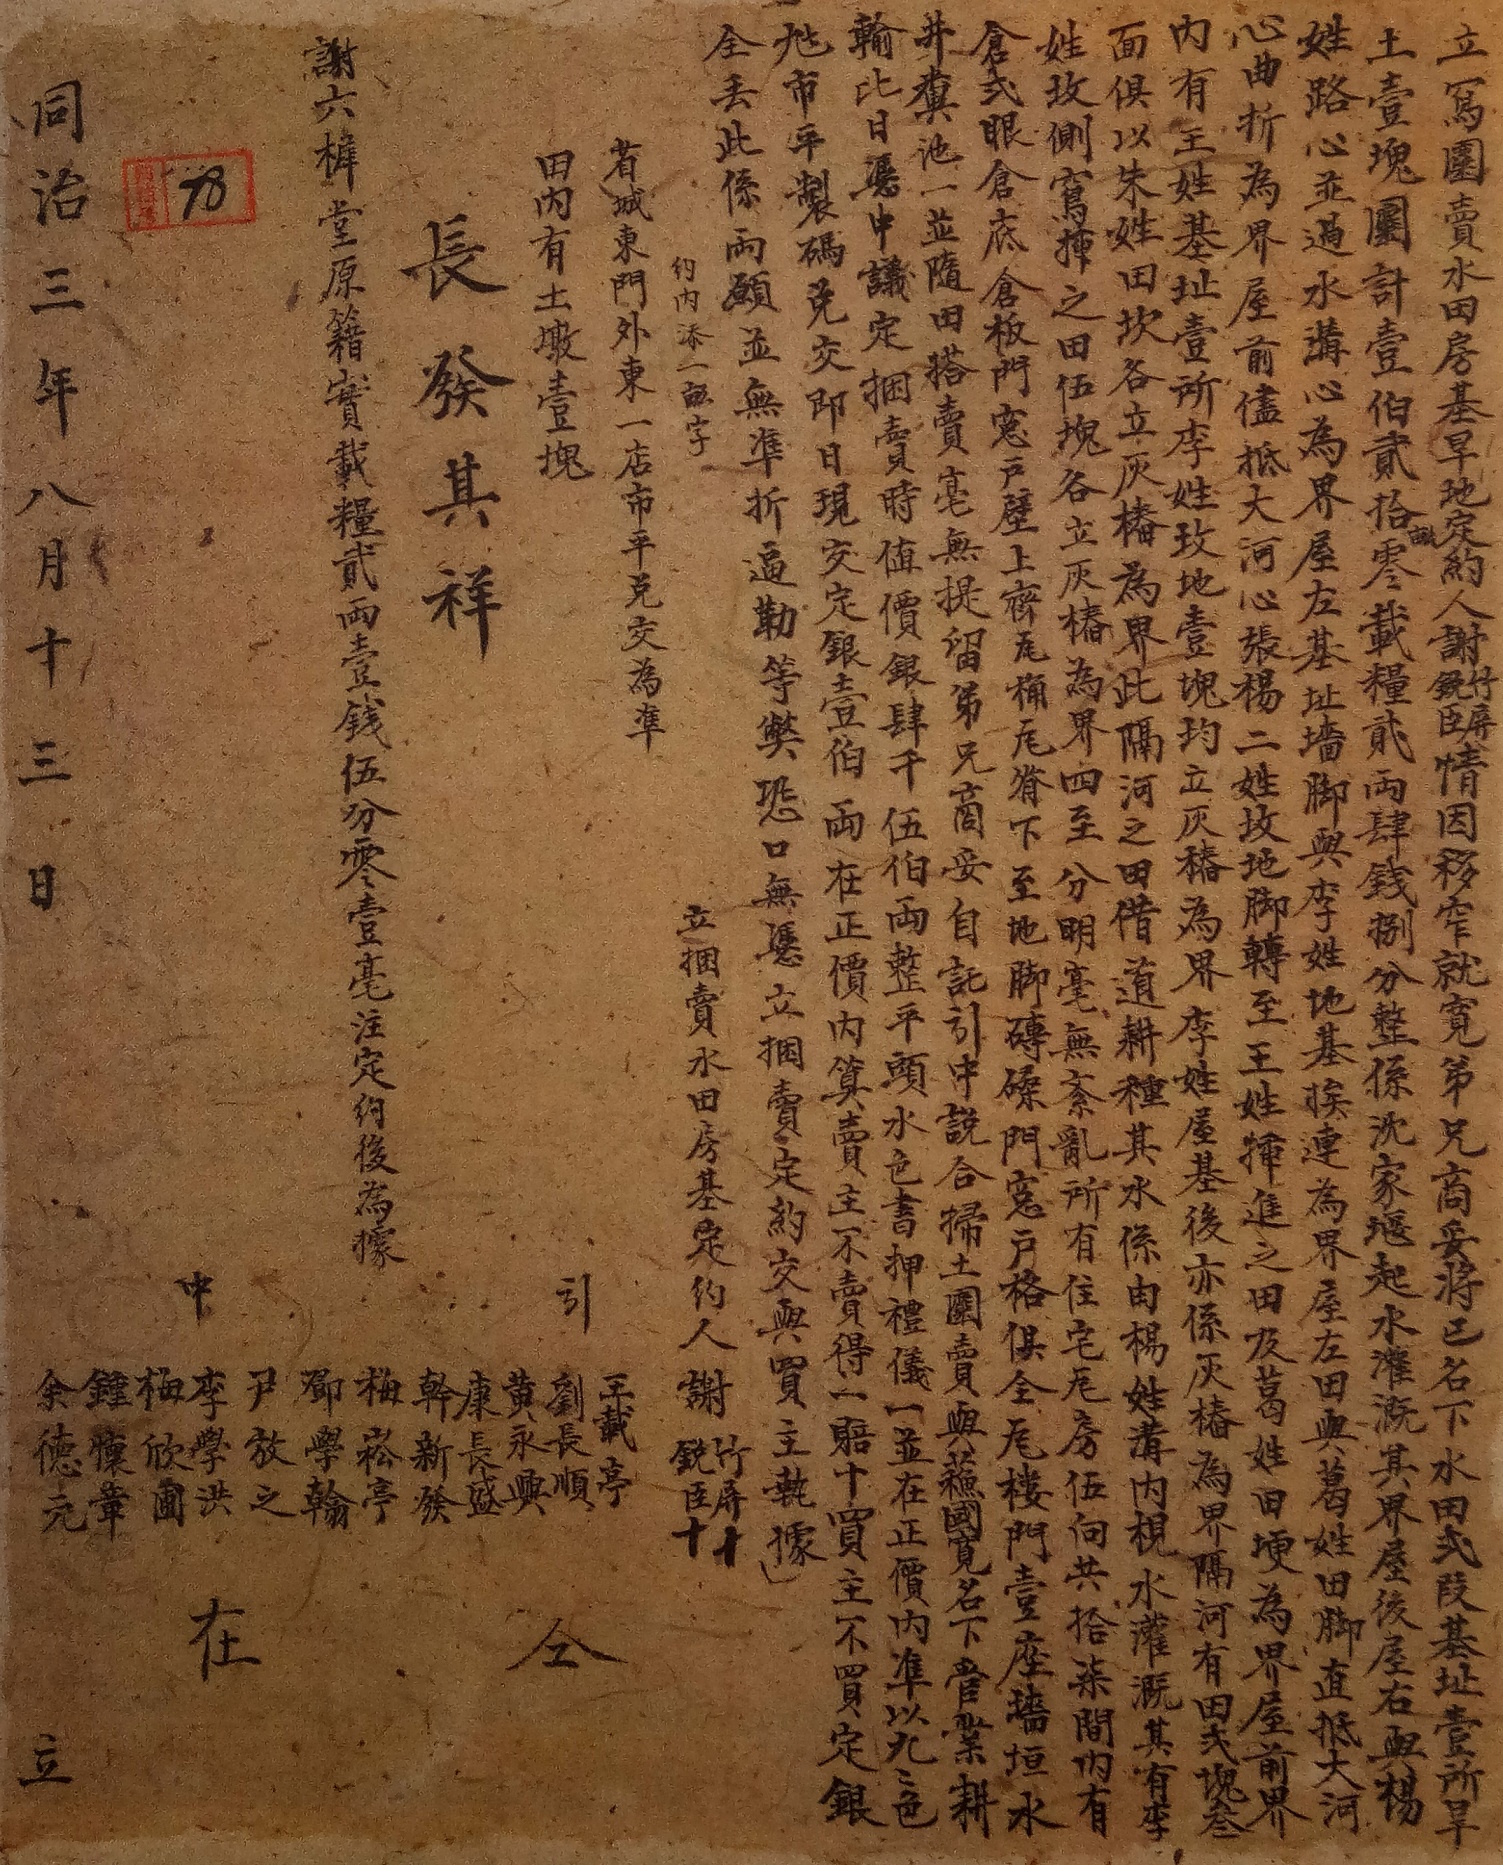 立寫圍賣水田房基旱地定約人謝竹屏銳臣情因移窄就寬弟兄商妥將己名下水田弍段基址壹所旱
土壹塊圍計壹伯貳拾畝零載糧貳兩肆錢捌分整係沈家堰起水灌溉其界屋後屋右與楊
姓路心並過水溝心為界屋左基址墻脚與李姓地基挨連為界屋左田與葛姓田脚直抵大河
心曲折為界屋前儘抵大河心張楊二姓坟地脚轉至王姓揷進之田及葛姓田埂為界屋前界
內有王姓基址壹所李姓坟地壹塊均立灰樁為界李姓屋基後亦係灰樁為界隔河有田弍塊叁
面俱以朱姓田坎各立灰樁為界此隔河之田借道耕種其水係由楊姓溝內梘水灌溉其有李
姓坟側寫揷之田伍塊各立灰樁為界四至分明毫無紊亂所有住宅瓦房伍向共拾柒間內有
倉弍眼倉底倉板門窓戶壁上齊瓦桷瓦脊下至地脚磚磉門窓戶格俱全瓦樓門壹座墻垣水
井糞池一並隨田搭賣毫無提留弟兄商妥自託引中說合掃土圍賣與蘓國寬名下管業耕
輸比日憑中議定捆賣時值價銀肆千伍伯兩整平頭水色書押禮儀一並在正價內準以九三色
九七市平製碼兌交即日現交定銀壹伯兩在正價內算賣主不賣得一賠十買主不買定銀
全丟此係兩願並無準折逼勒等獘恐口無憑立捆賣定約交與買主執據
約內添一畝字
立捆賣水田房基定約人謝竹屏十銳臣十
省城東門外東一店市平兌交為準
田內有土墩壹塊
長發其祥
謝六樨堂原籍實載糧貳兩壹錢伍分零壹毫注定約後為據
引
王載亭
劉長順
黃永興
康長盛
幹新發
梅崧亭
鄧學翰
尹放之
中
李學洪
梅欣圃
鍾懷章
余德元
仝
在
同治三年八月十三日
立